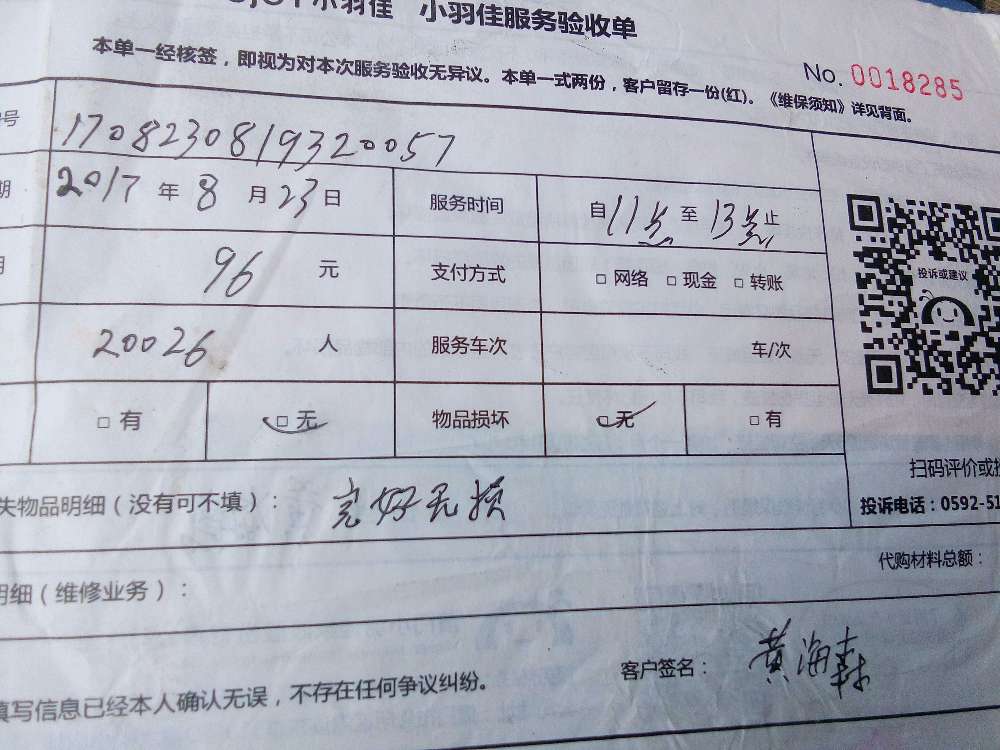 小羽佳 小羽佳服务验收单
本单一经核签，即视为对本次服务验收无异议。本单一式两份，客户留存一份(红)。《维保须知》详见背面。
No. 0018285
号 1708230819320057
期 2017年8月23日 服务时间 自11点至13点止
96 元 支付方式 □网络 □现金 □转账
20026 人 服务车次 车/次
□有 □无 物品损坏 □无 □有
投诉或建议
扫码评价或
投诉电话：0592-51
失物品明细（没有可不填）： 完好无损
代购材料总额：
明细（维修业务）：
填写信息已经本人确认无误，不存在任何争议纠纷。 客户签名： 黄海森